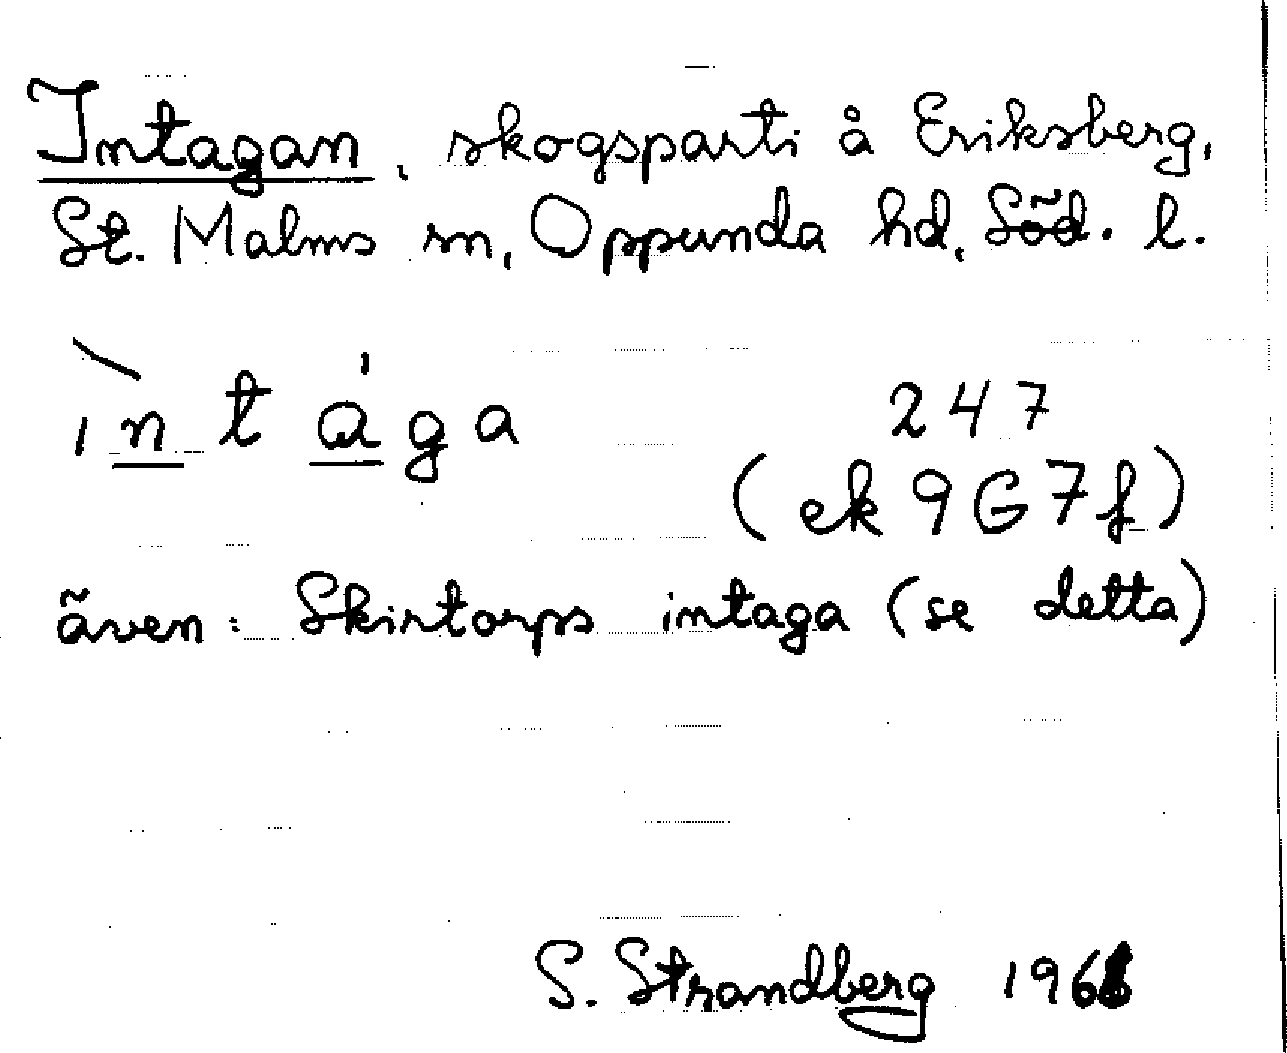 Intagan, skogsparti å Eriksberg,
St. Malms sn, Oppunda hd, Söd. l.
ìntága 247
(ek 9G7f)
även: Skirtorps intaga (se detta)
S. Strandberg